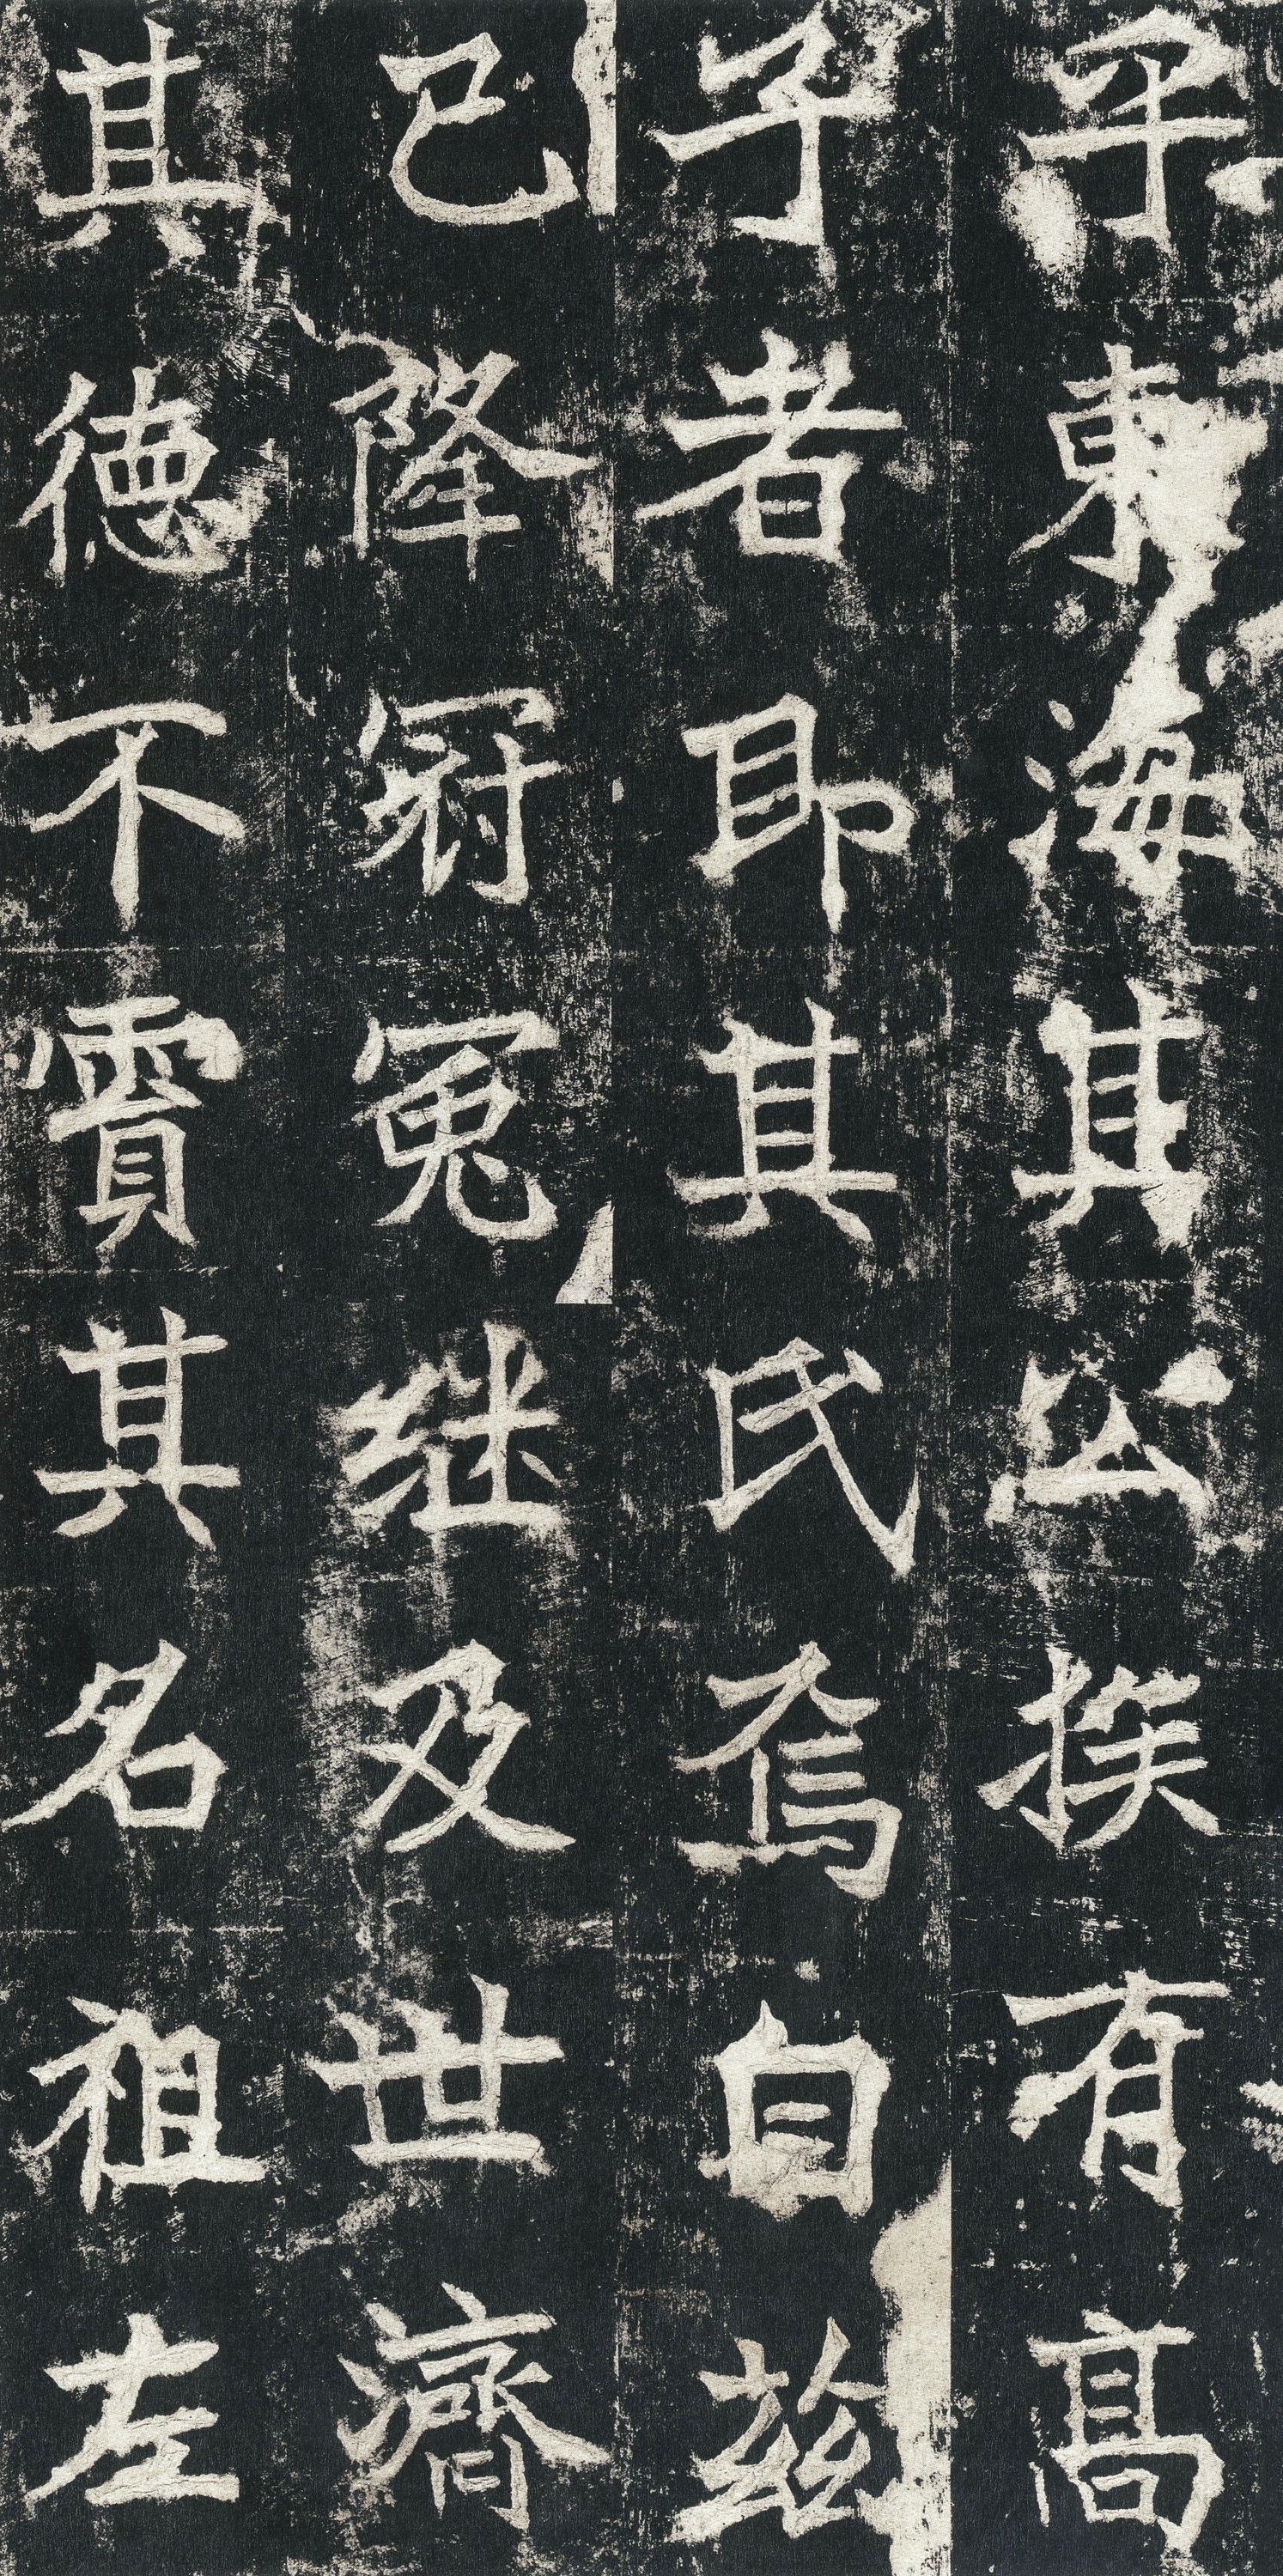 乎東海其公族有高
子者即其氏焉自茲
已降冠冕継及世濟
其德不霣其名祖左